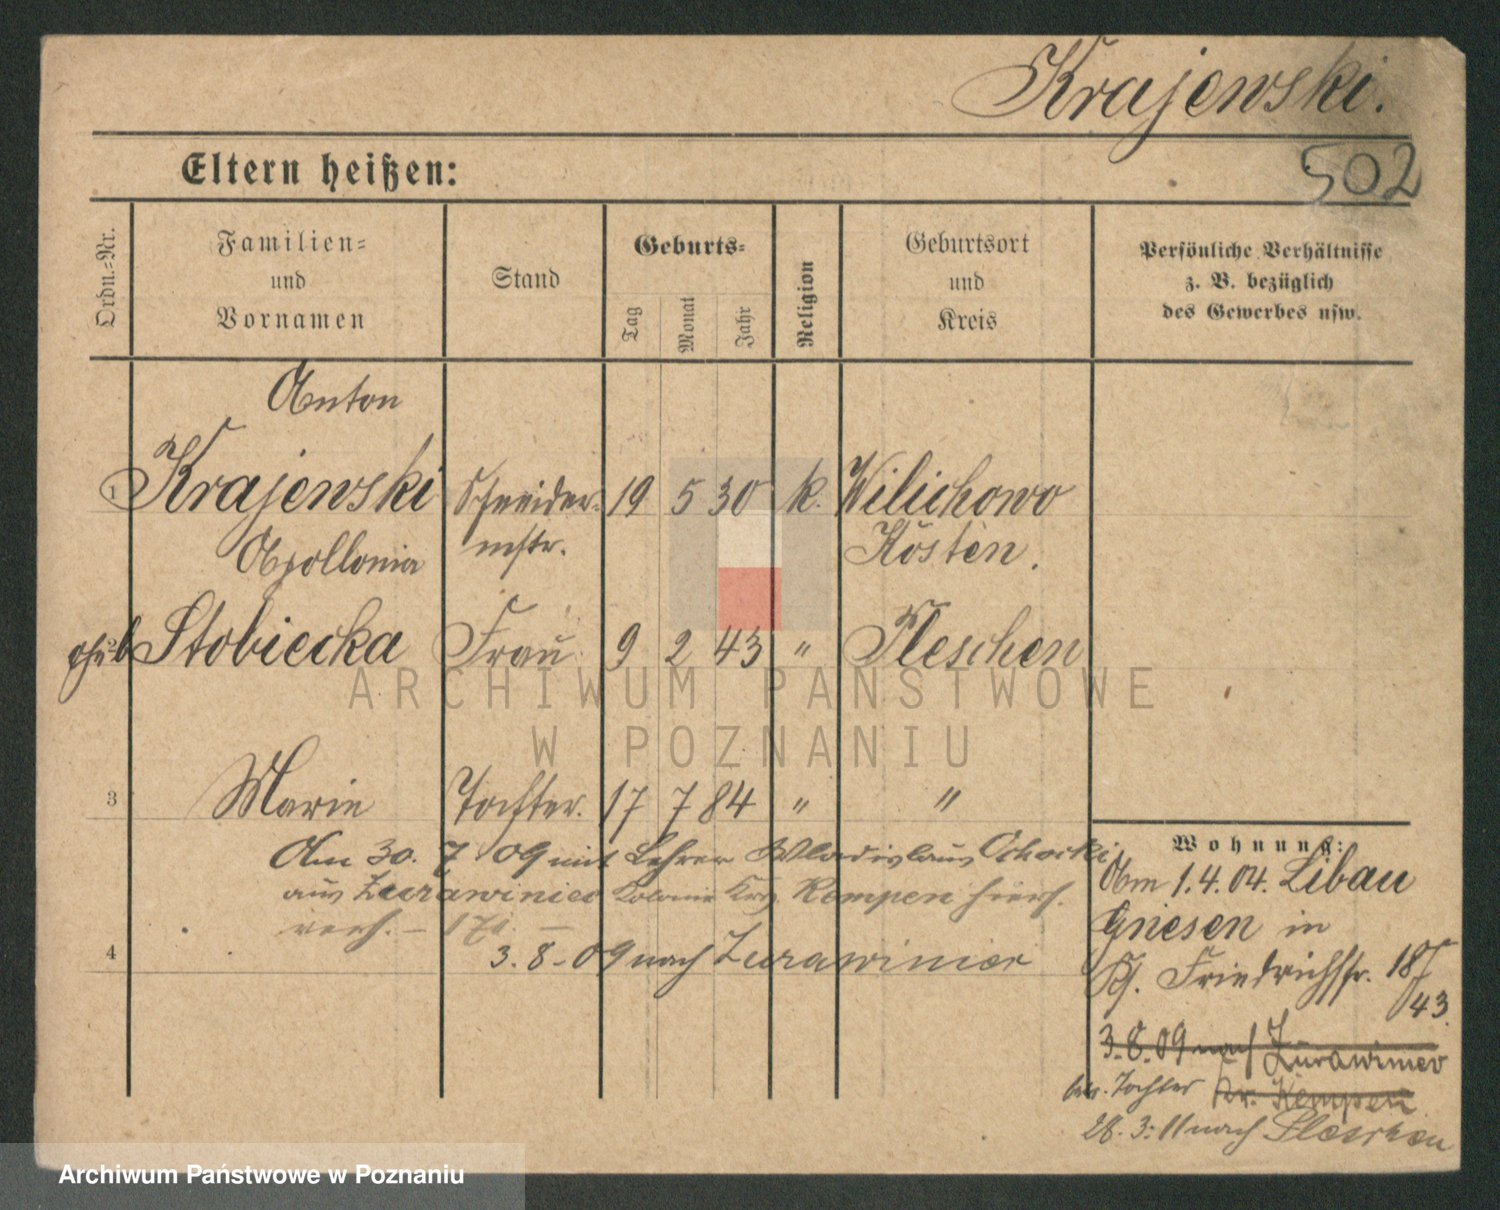 Krajewski.
502
Eltern heißen:
Ordn.=Nr.
Familien=
und
Vornamen
Stand
Geburts=
Tag
Monat
Jahr
Religion
Geburtsort
und
Kreis
Persönliche Verhältnisse
z. B. bezüglich
des Gewerbes usw.
Anton
1 Krajewski Schneider= 19 5 30 k. Wilichowo
mstr. Kosten.
Apollonia
geb Stobiecka Frau 9 2 43 " Pleschen
3 Marie Tochter. 17 7 84 " "
Am 30. 7 09 mit Lehrer Wladislaus
aus Kolonie Krs. Kempen hier
verh. –
4 3. 8 - 09 nach Zurawiniec
Wohnung:
Am 1.4.04. Libau
Gnesen in
Friedrichstr. 18
43.
3.8.09 nach Zurawiniec
Tochter Kr. Kempen
28. 3. 11 nach Pleschen
ARCHIWUM PAŃSTWOWE
W POZNANIU
Archiwum Państwowe w Poznaniu